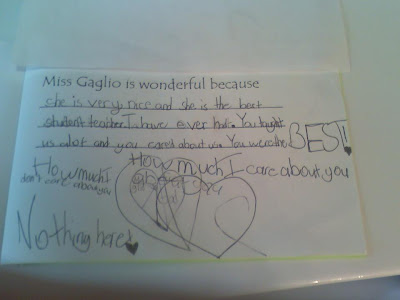 Miss Gaglio is wonderful because
she is very nice and she is the best
student teacher I have ever had. You taught
us alot and you cared about us. You were the BEST!
How much I care about you
How much I
don't care about you
Nothing here!